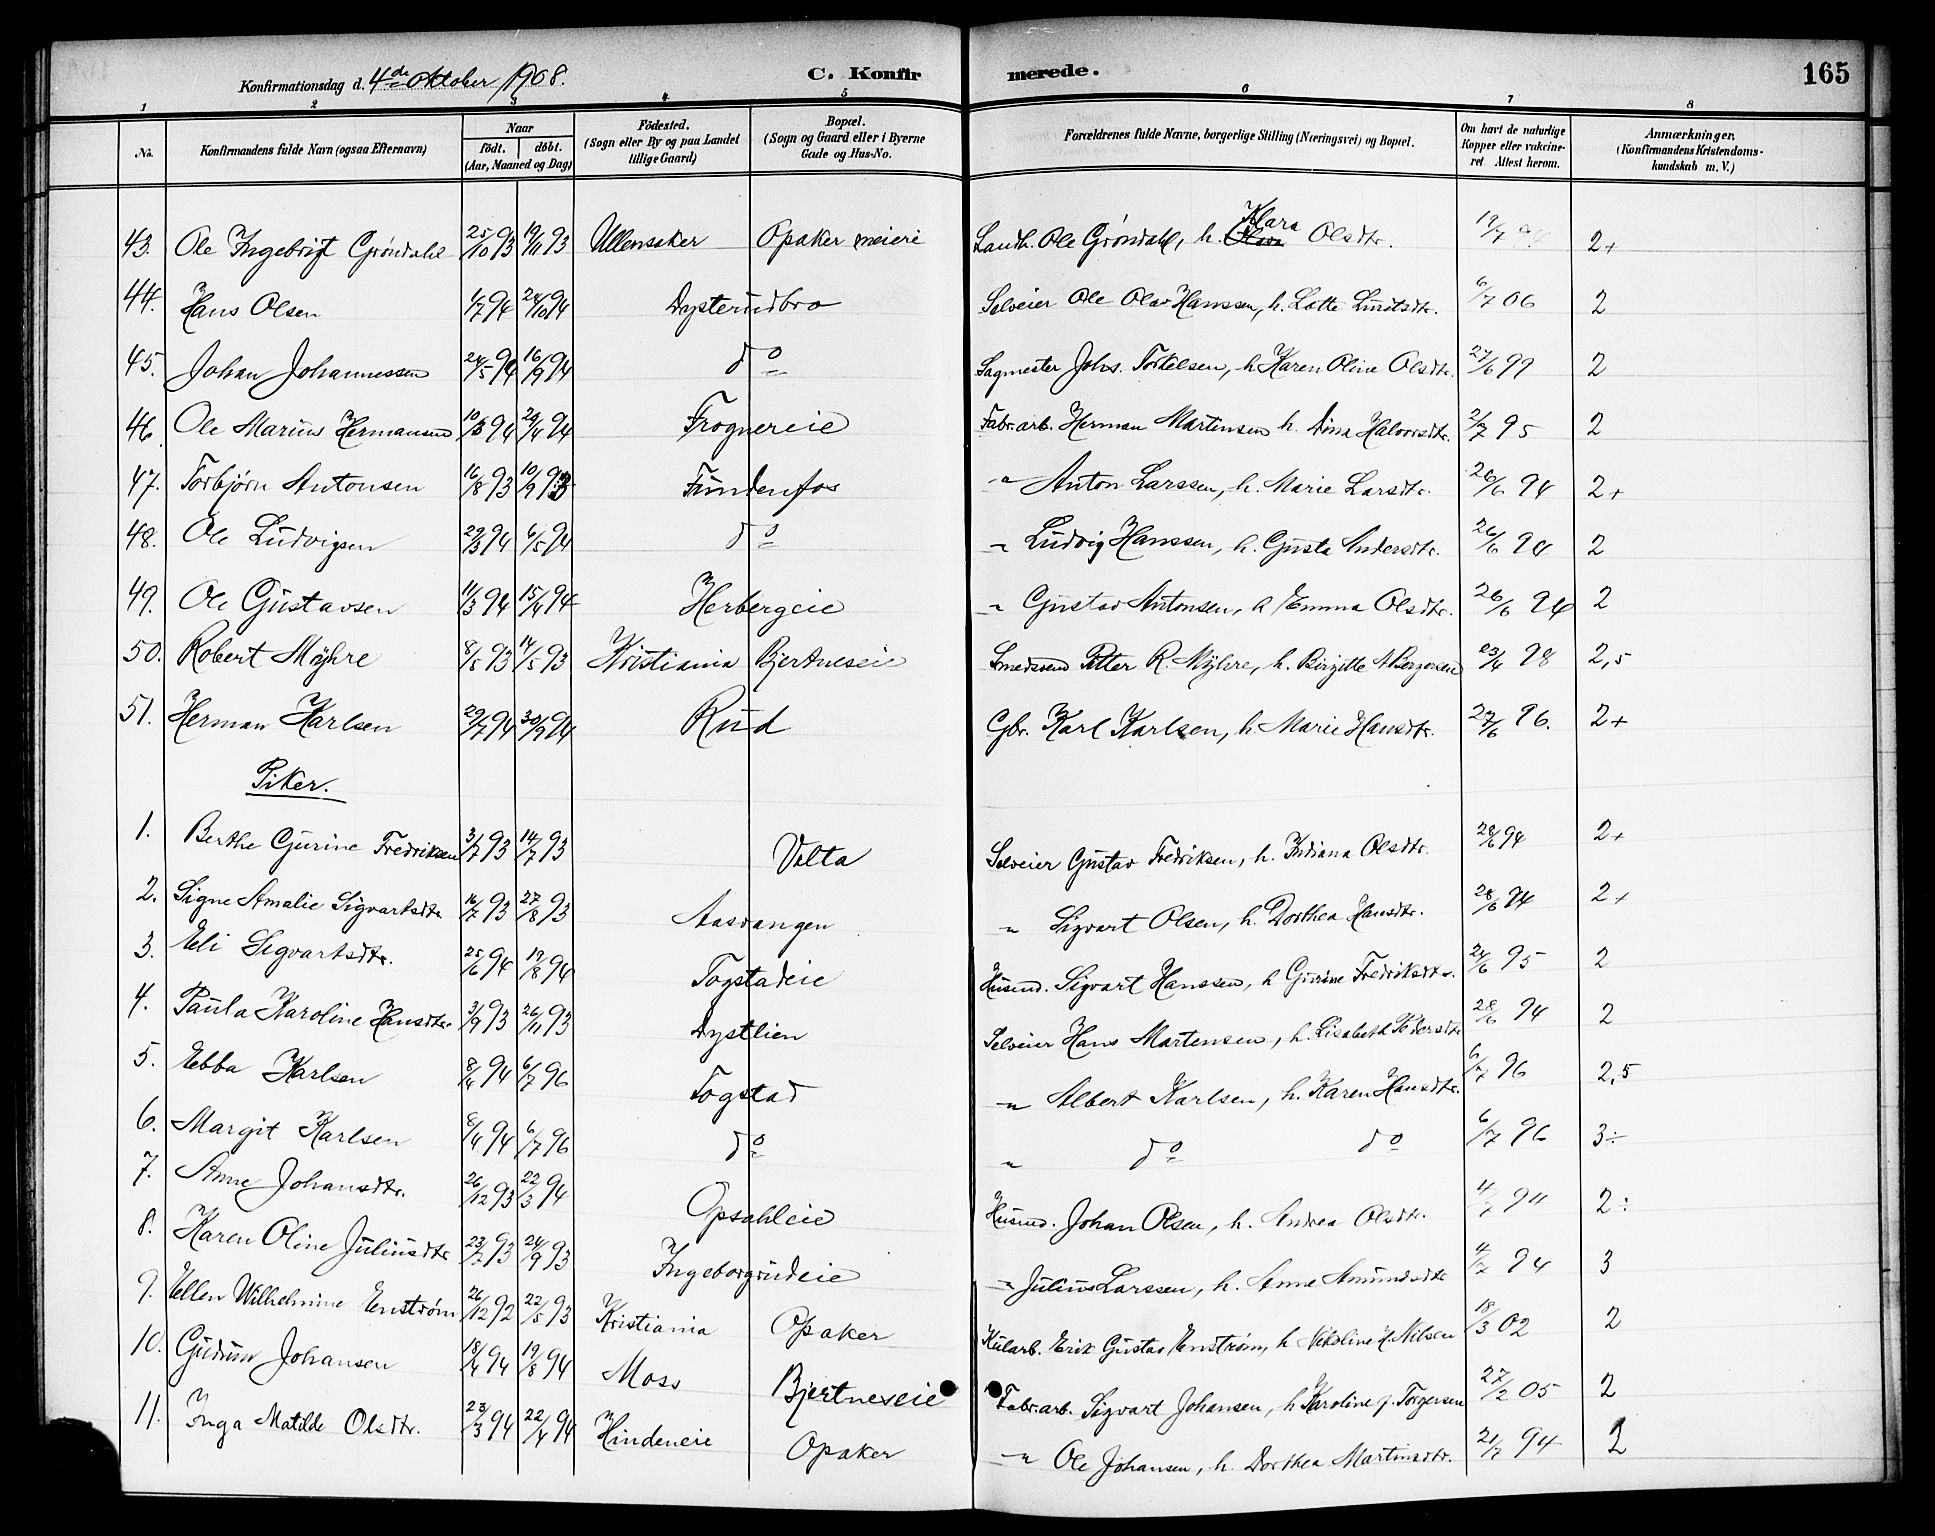 Konfirmationsdag d. 4de Oktober 1908. C. Konfirmerede. 165
1 2 3 4 5 6 7 8
No. Konfirmandens fulde Navn (ogsaa Efternavn) Naar födt. döbt. (Aar, Maaned og Dag) Födested. (Sogn eller By og paa Landet tillige Gaard) Bopæl. (Sogn og Gaard eller i Byerne Gade og Hus-No. Forældrenes fulde Navne, borgerlige Stilling (Næringsvei) og Bopæl. Om havt de naturlige Kopper eller vakcineret. Attest herom. Anmærkninger. (Konfirmandens Kristendomskundskab m. V.)
43. Ole Ingebrigt Gröndahl 25/10 93 19/11 93 Ullensaker Opaker meieri Landh. Ole Gröndahl, h. Klara Olsdtr. 2+
44. Hans Olsen 1/7 94 24/10 94 Dysterudbro Selveier Ole Olav Hanssen, h. Lotte Lundsdtr. 6/7 06 2
45. Johan Johannessen 24/5 94 16/9 94 do Sagmester Johs. Torkelsen, h Karen Oline Olsdtr. 27/6 99 2
46. Ole Marius Hermansen 10/3 94 29/4 94 Frognereie Fabr.arb. Herman Martinsen h. Dina Halvorsdtr. 2/7 95 2
47. Torbjörn Antonsen 16/8 93 10/9 93 Fundenfos " Anton Larssen, h. Marie Larsdtr. 26/6 94 2+
48. Ole Ludvigsen 29/3 94 6/5 94 do " Ludvig Hanssen, h. Gusta Andersdtr. 26/6 94 2
49. Ole Gustavsen 11/3 94 15/4 94 Herbergeie " Gustav Antonsen, h Emma Olsdtr. 26/6 94 2
50. Robert Möhre 8/5 93 14/5 93 Kristiania Bjertneseie Smedsvend Petter R. Myhre, h. Birgitte A Bergersen 23/4 98 2,5
51. Herman Karlsen 29/7 94 30/9 94 Rud Gbr. Karl Karlsen, h. Marie Hansdtr. 27/6 96. 2+
Piker.
1. Berthe Gurine Fredriksen 3/7 93 14/7 93 Velta Selveier Gustav Fredriksen, h. Indiana Olsdtr. 28/6 94 2+
2. Signe Amalie Sigvartsdtr 16/7 93 27/8 93 Aasvangen " Sigvart Olsen, h. Dorthea Hansdtr. 28/6 94 2+
3. Eli Sigvartsdtr. 25/6 94 19/8 94 Togstadeie Husmd. Sigvart Hanssen, h Gurine Fredriksdtr. 24/6 95 2
4. Paula Karoline Hansdtr. 3/9 93 26/11 93 Dystlien Selveier Hans Martensen, h. Lisabeth Pedersdtr 28/6 94 2
5. Ebba Karlsen 8/4 94 6/7 96 Togstad " Albert Karlsen, h. Karen Hansdtr. 6/7 96 2,5
6. Margit Karlsen 8/4 94 6/7 96 do " do do 6/7 96 3÷
7. Anne Johansdtr. 26/12 93 22/3 94 Opsahleie Husmd. Johan Olsen, h. Andrea Olsdtr. 4/7 94 2÷
8. Karen Oline Juliusdtr 23/7 93 24/9 93 Ingeborgrudeie " Julius Larssen, h. Anne Amundsdtr 4/7 94 3
9. Ellen Wilhelmine Enström 26/12 92 22/5 93 Kristiania Opaker Kularb. Erik Gustav Enström, h Nikoline f. Nilsen 18/3 02 2
10. Gudrun Johansen 18/4 94 19/8 94 Moss Bjertneseie Fabr.arb. Sigvart Johansen, h Karoline f. Torgersen 27/2 05 2
11. Inga Matilde Olsdtr. 23/3 94 22/4 94 Hindeneie Opaker " Ole Johansen, h. Dorthea Martinsdtr. 21/7 94 2